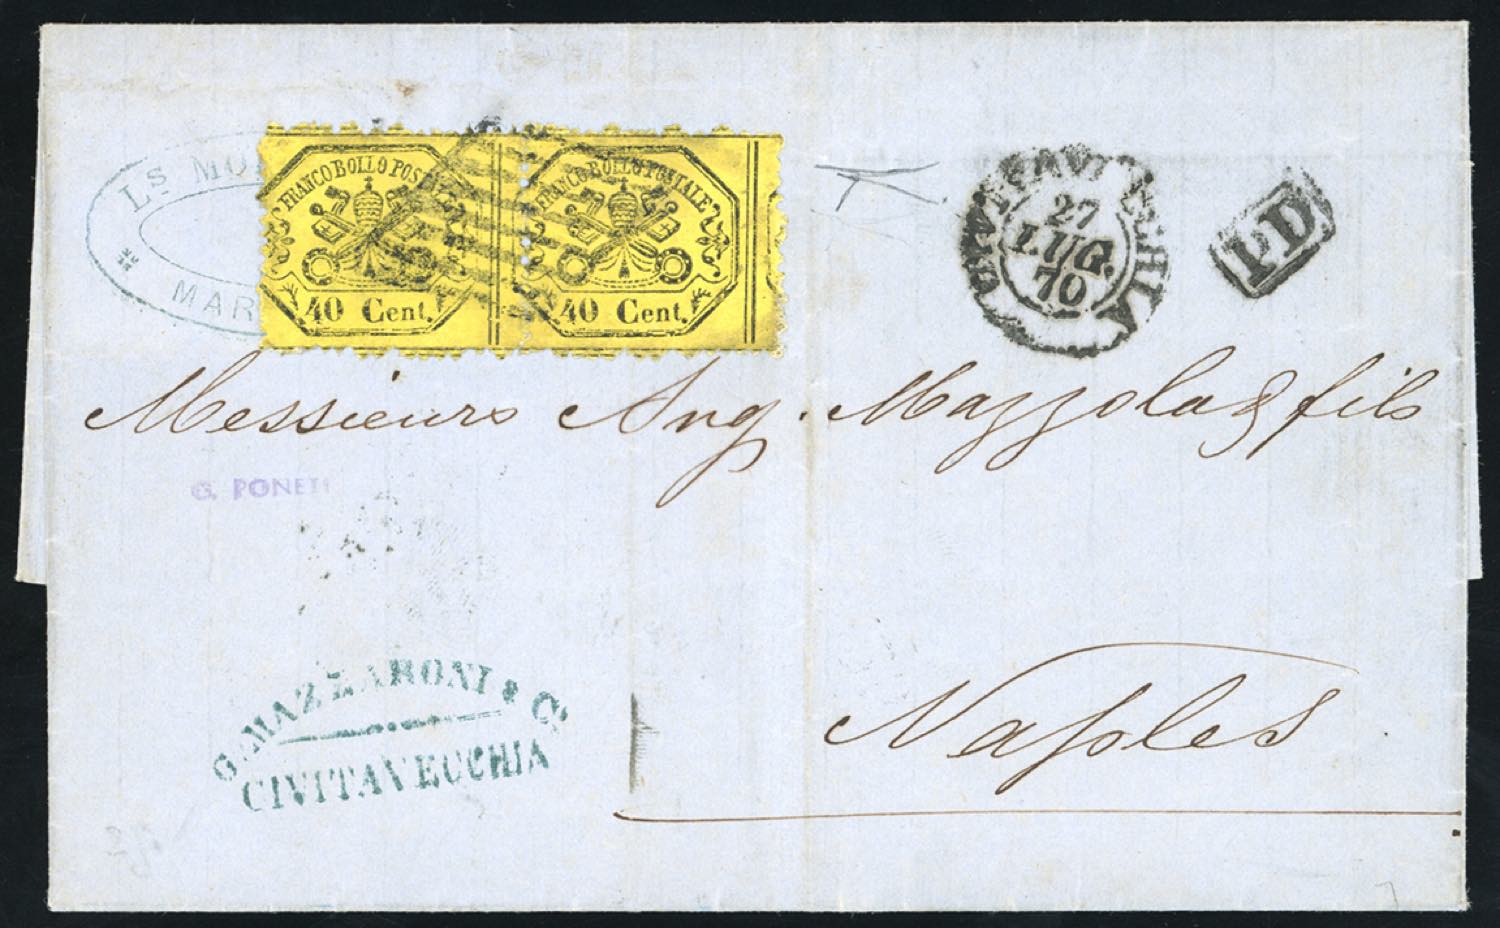 Ls MO
MAR
FRANCO BOLLO POSTALE
40 Cent.
FRANCO BOLLO POSTALE
40 Cent.
CIVITAVECCHIA
27
LUG.
70
P.D.
Messieurs Ang. Mazzola & fils
G. PONETI
G. MAZZARONI & C.
CIVITAVECCHIA
Naples